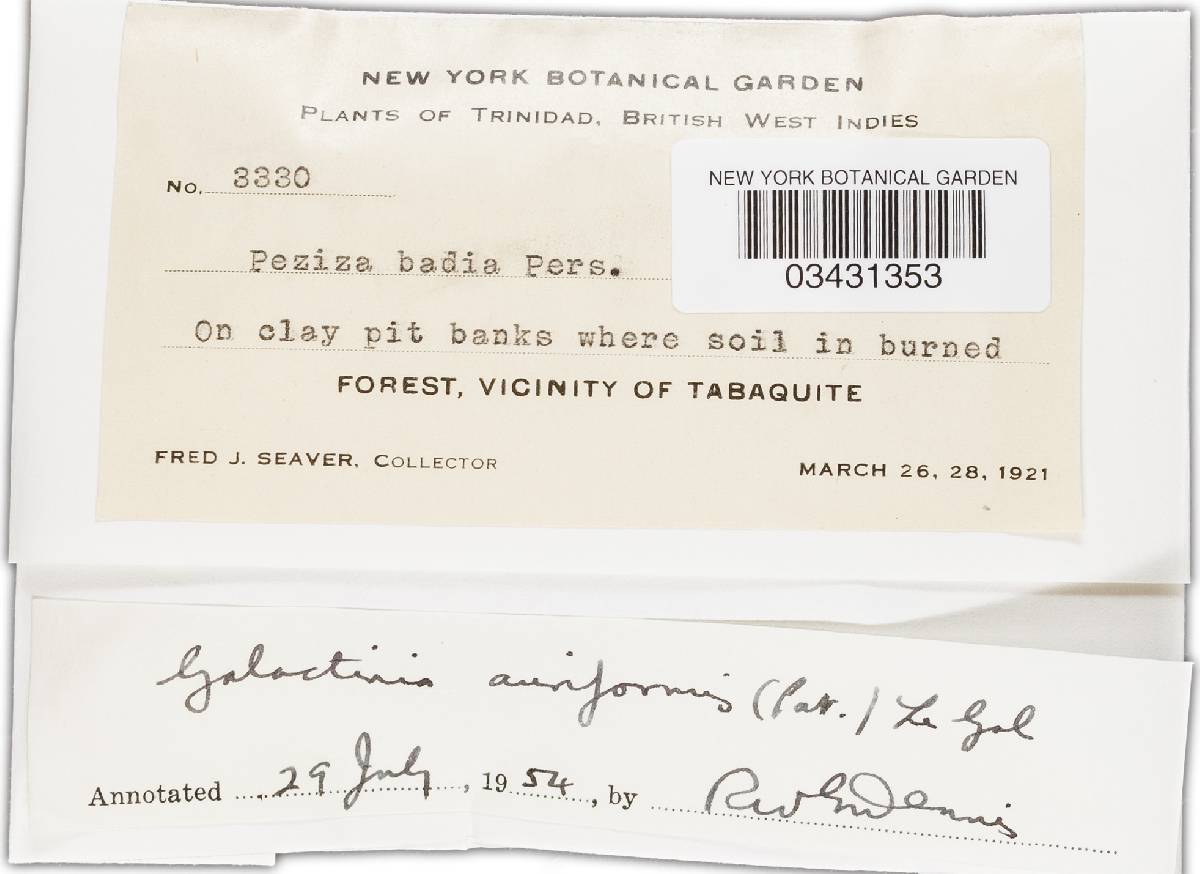 NEW YORK BOTANICAL GARDEN
PLANTS OF TRINIDAD, BRITISH WEST INDIES
NEW YORK BOTANICAL GARDEN
03431353
No. 3330
Peziza badia Pers.
On clay pit banks where soil in burned
FOREST, VICINITY OF TABAQUITE
FRED J. SEAVER, COLLECTOR
MARCH 26, 28, 1921
Galactinia auriformis (Pat.) Le Gal
Annotated 29 July, 1954, by RWG Dennis